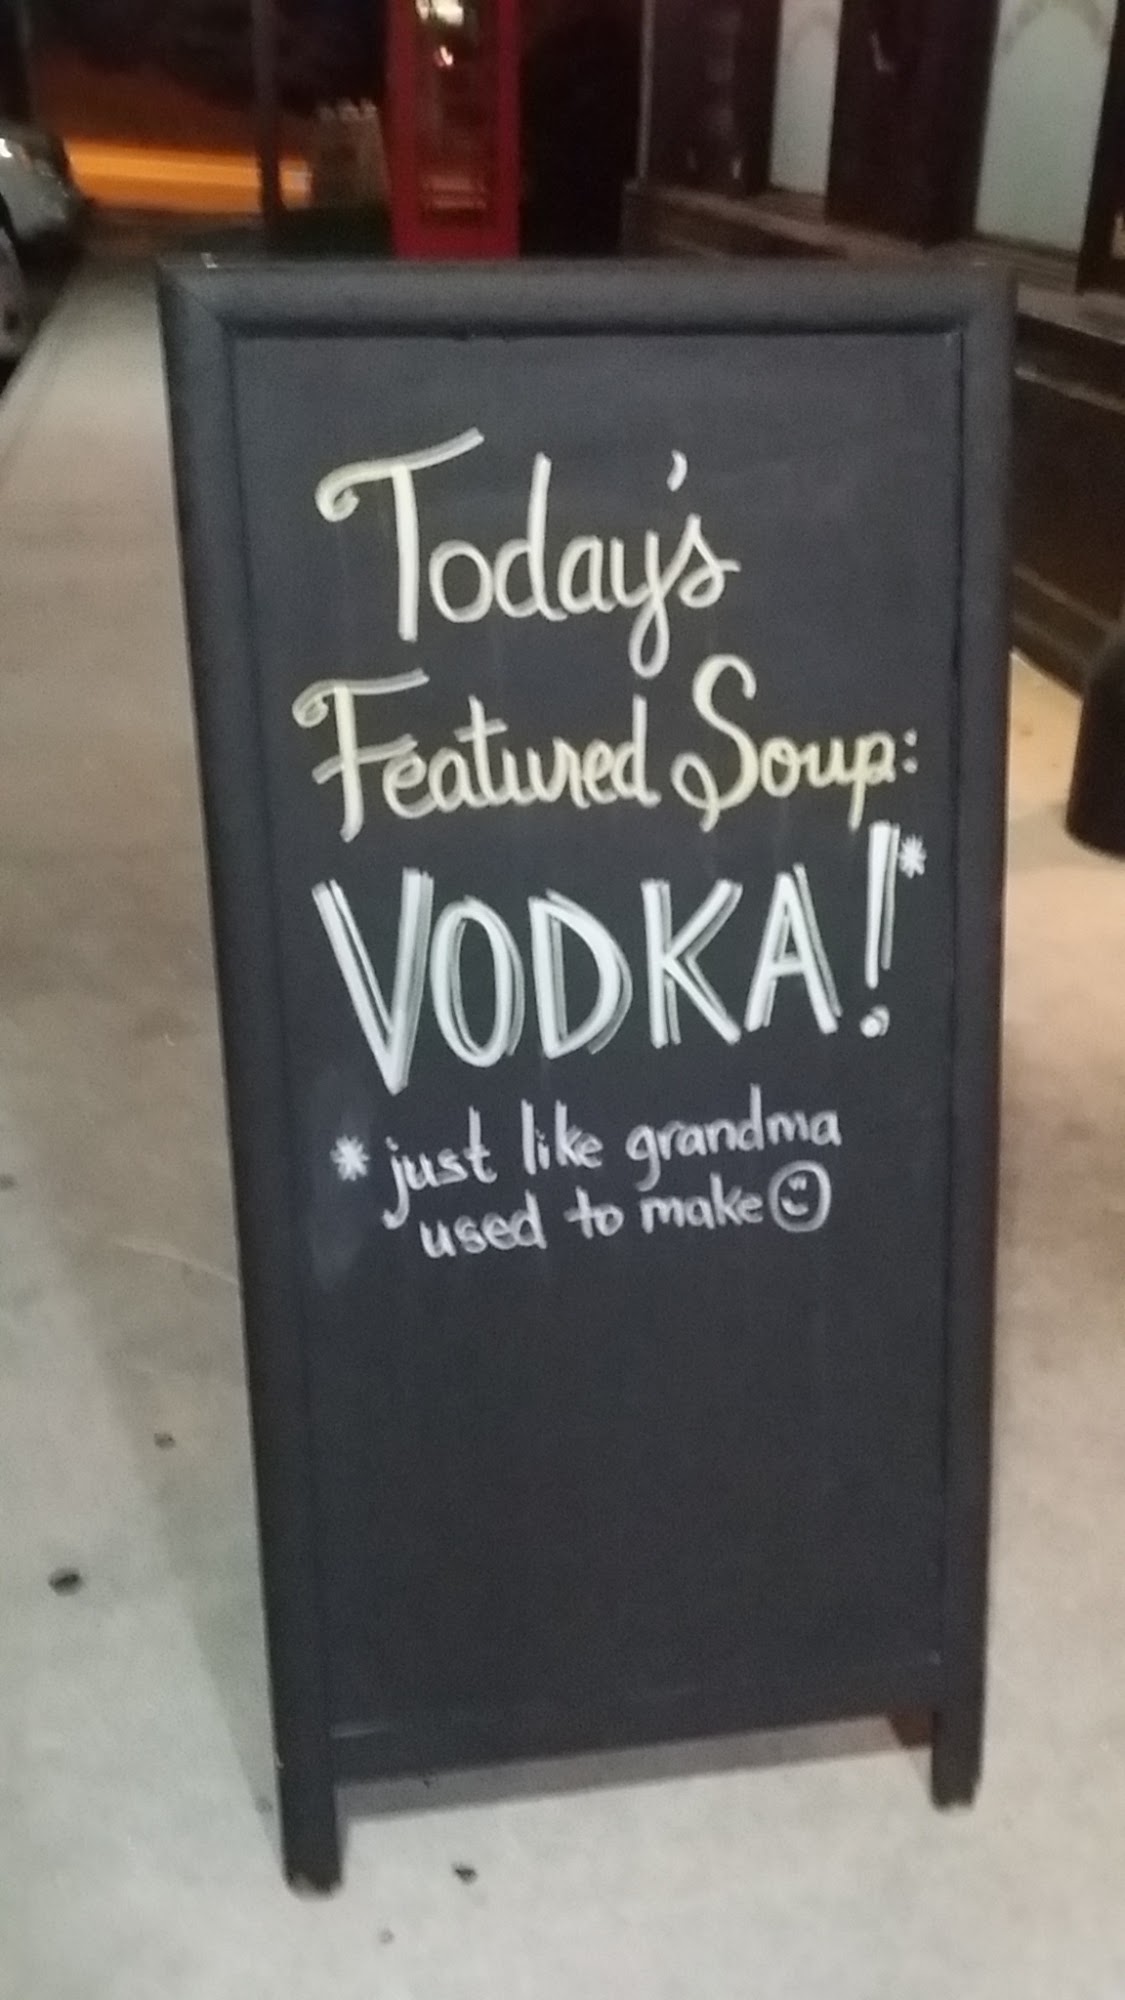 Today's
Featured Soup:
VODKA!*
*just like grandma
used to make☺